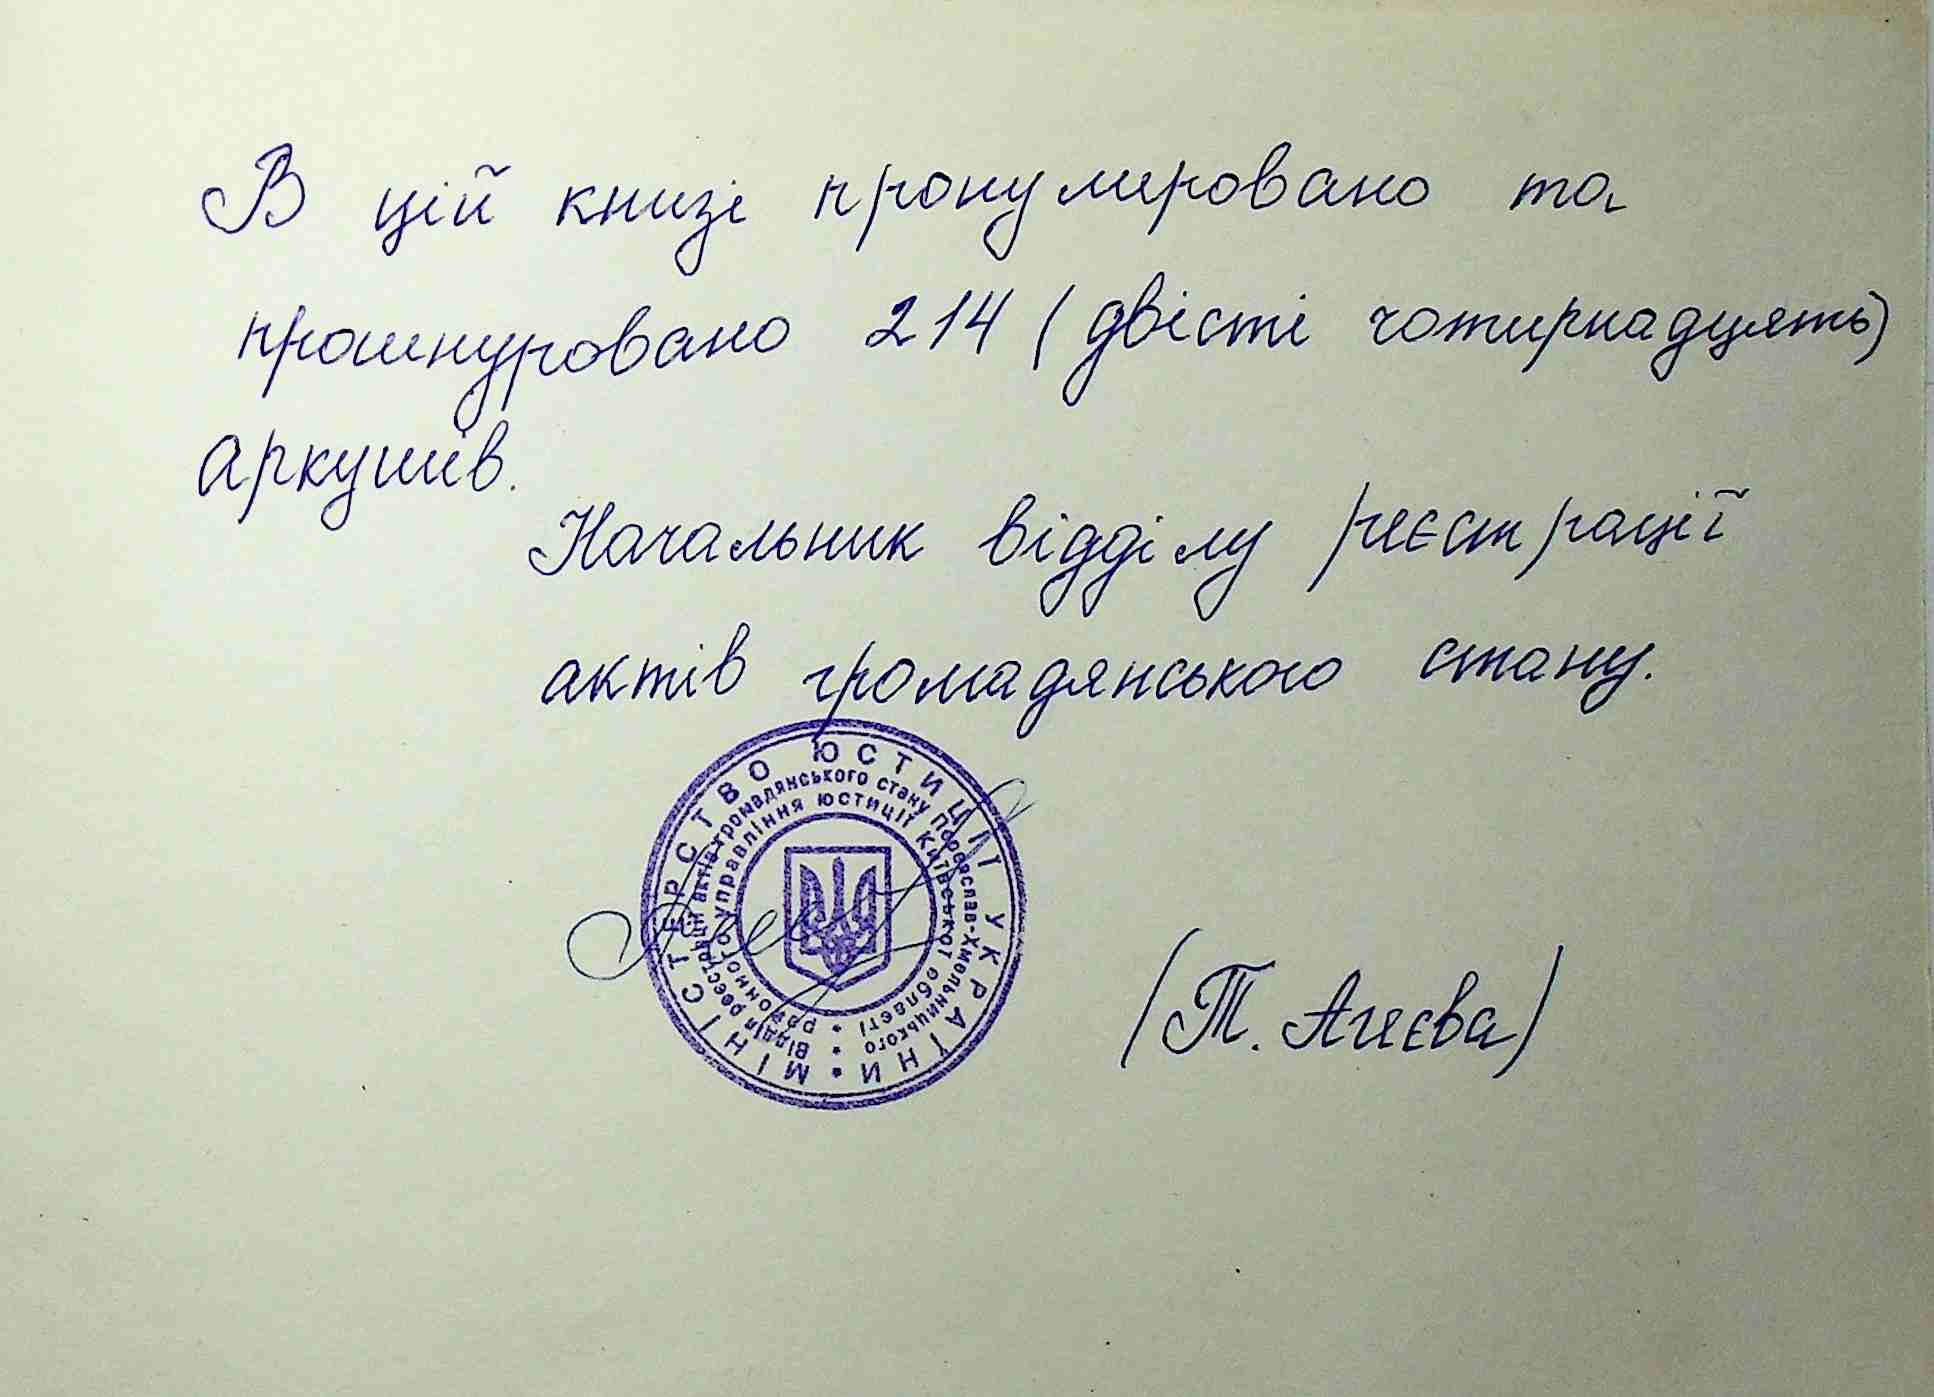 В цій книзі пронумеровано та
прошнуровано 214 (двісті чотирнадцять)
аркушів.
Начальник відділу реєстрації
актів громадянського стану.
МІНІСТЕРСТВО ЮСТИЦІЇ УКРАЇНИ
Відділ реєстрації актів громадянського стану Переяслав-Хмельницького
районного управління юстиції Київської області
(Т. Агеєва)